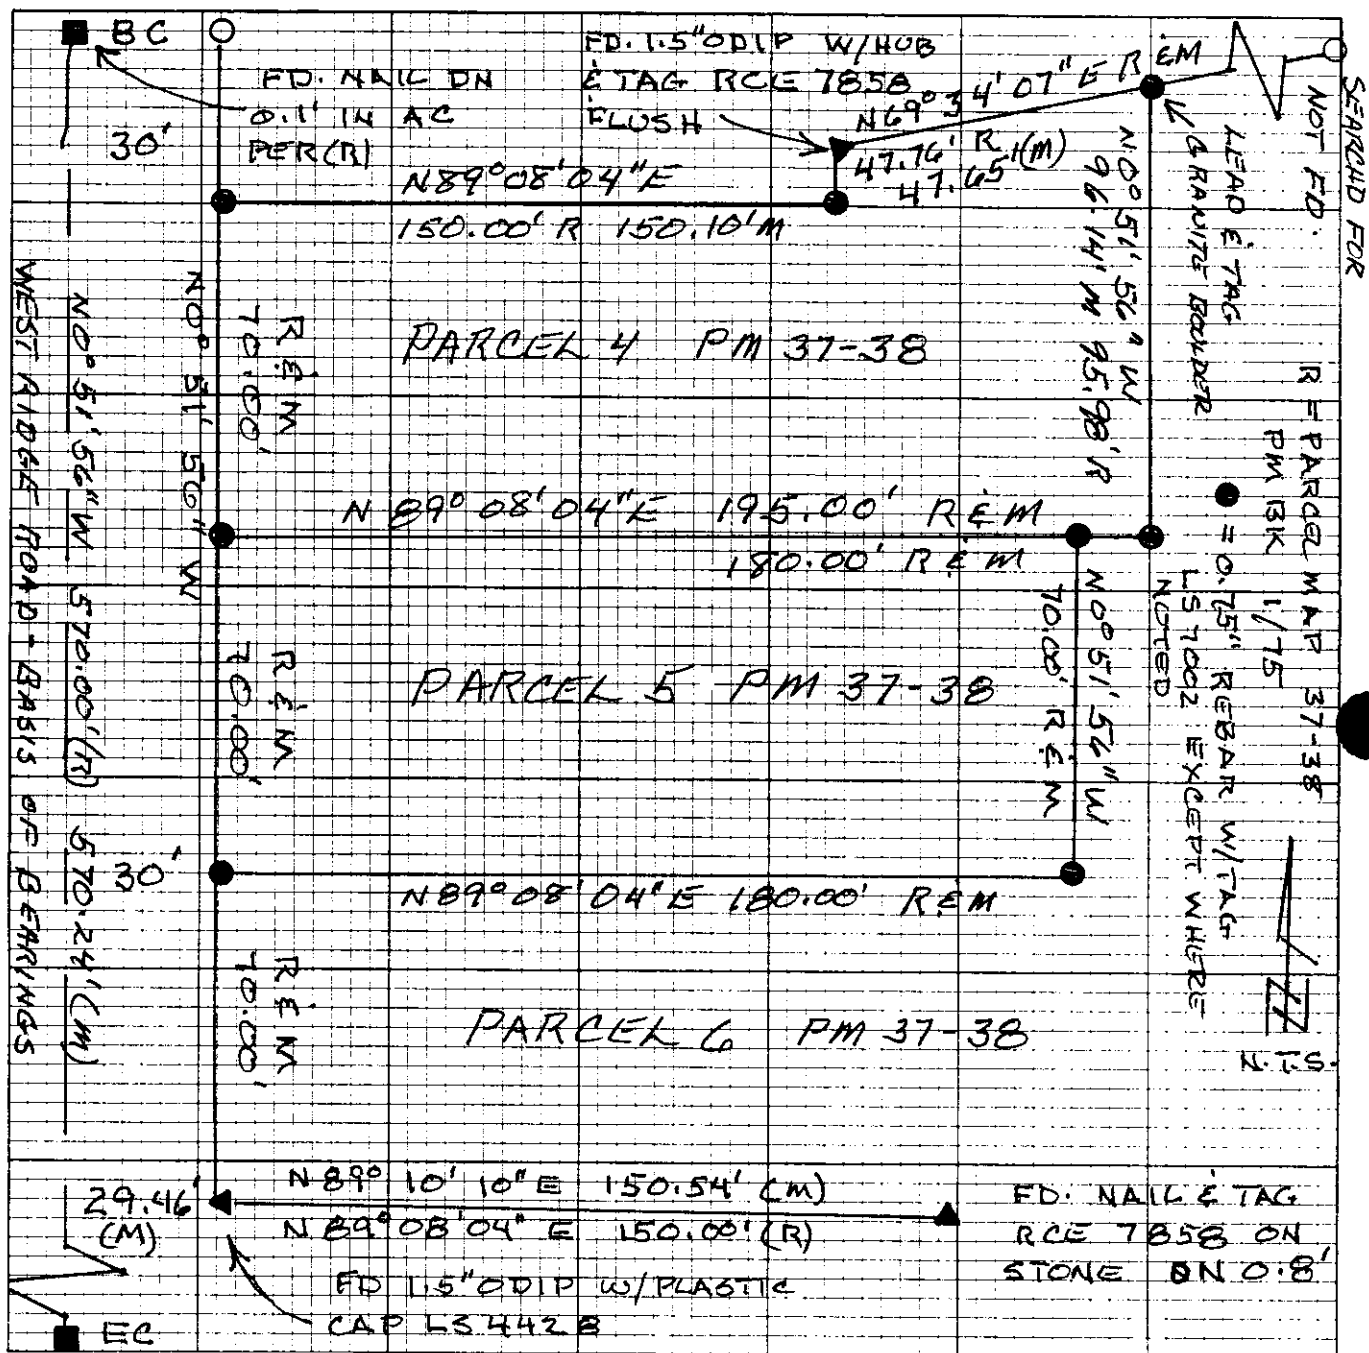 BC
FD. NAIL DN
0.1' IN AC
PER (R)
30'
FD. 1.5" ODIP W/HUB
& TAG RCE 7858
FLUSH
N69°34'07"E R&M
47.76' R
47.65' (M)
SEARCHD FOR
NOT FD.
LEAD & TAG
GRANITE BOULDER
N89°08'04"E
150.00' R 150.10' M
N0°51'56"W
96.14' M 95.98' R
R = PARCEL MAP 37-38
PM BK 1/75
= 0.75" REBAR W/TAG
LS 7002 EXCEPT WHERE
NOTED
N.T.S.
WEST RIDGE ROAD - BASIS OF BEARINGS
N0°51'56"W 570.00' (R) 570.24' (M)
N0° 51' 56" W
R&M
70.00'
PARCEL 4 PM 37-38
N 89° 08' 04"E 195.00' R&M
180.00' R&M
R&M
70.00'
PARCEL 5 PM 37-38
N0°51'56"W
70.00' R&M
30'
N89°08'04"E 180.00' R&M
R&M
70.00'
PARCEL 6 PM 37-38
29.46'
(M)
N89° 10' 10"E 150.54' (M)
N 89° 08'04" E 150.00' (R)
FD 1.5" ODIP W/PLASTIC
CAP LS 4428
FD. NAIL & TAG
RCE 7858 ON
STONE DN 0.8'
EC